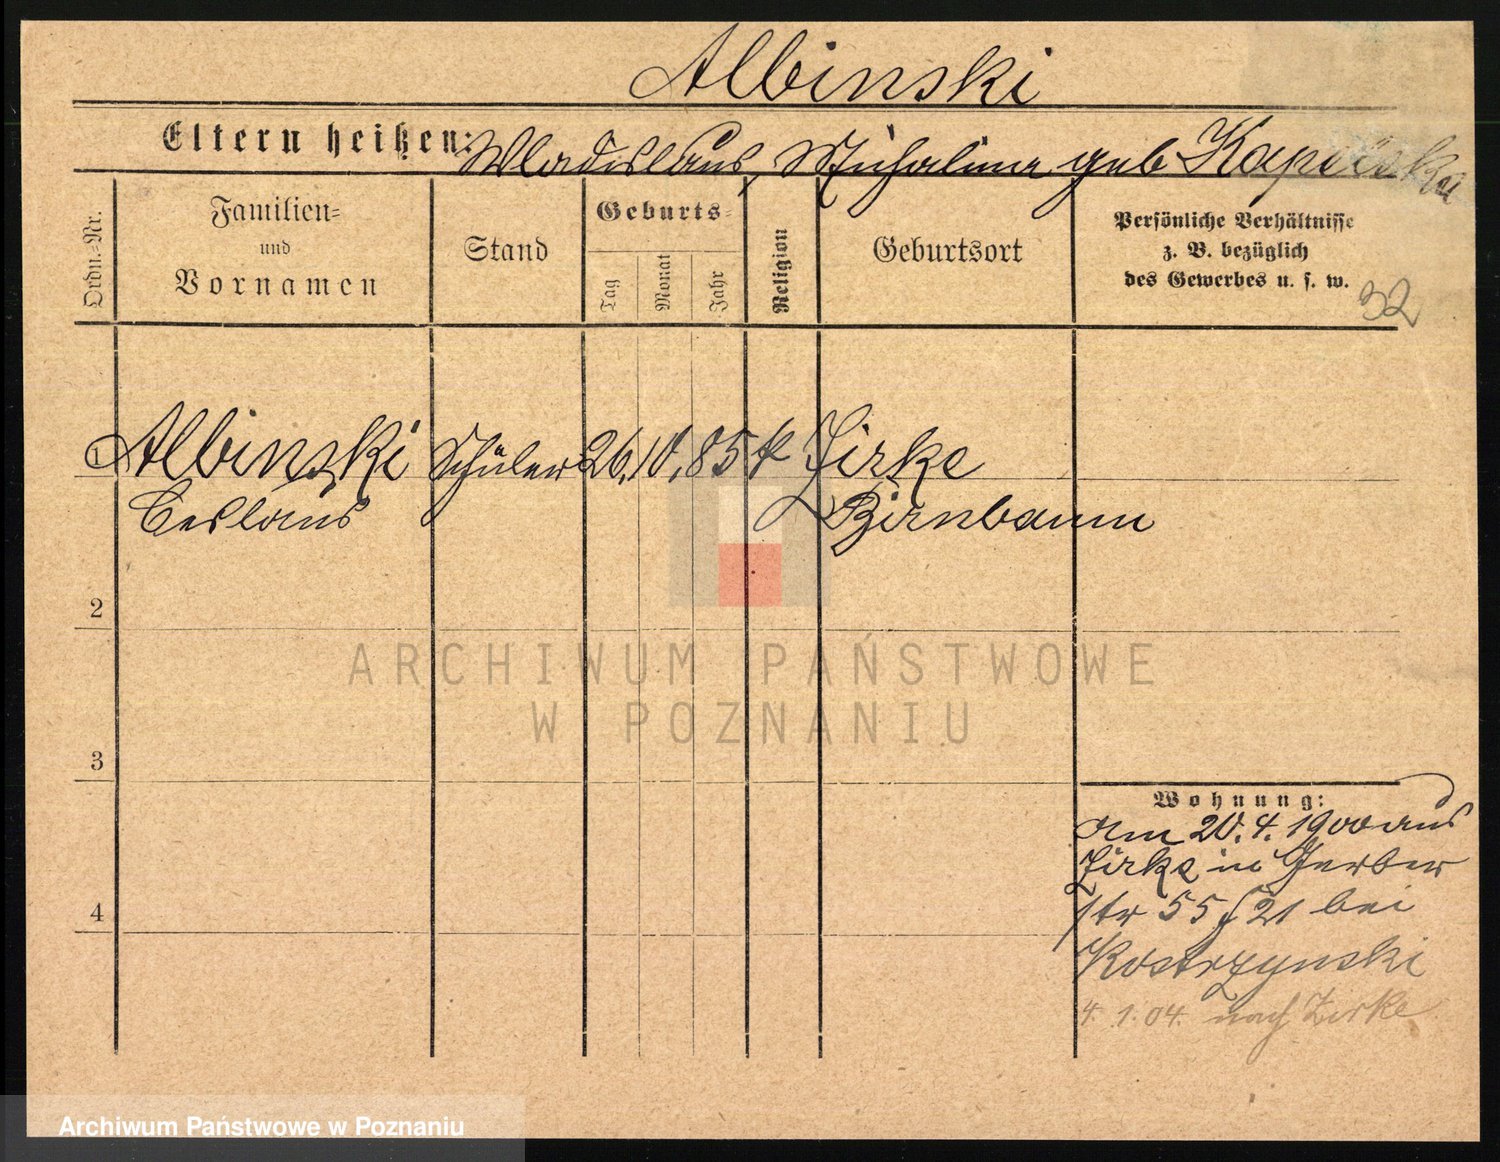 Albinski
Eltern heißen: Wladislaus, Michalina geb Kapuska
Ordn.-Nr.
Familien-
und
Vornamen
Stand
Geburts-
Tag
Monat
Jahr
Religion
Geburtsort
Persönliche Verhältnisse
z. B. bezüglich
des Gewerbes u. s. w.
32
1 Albinski Schüler 26. 10. 85 k Zirke
Ceslaus Birnbaum
2
ARCHIWUM PAŃSTWOWE
W POZNANIU
3
Wohnung:
am 20. 4. 1900 aus
Zirke in Gerber
str 55 f 21 bei
Kostrzynski
4
4. 1. 04. nach Zirke
Archiwum Państwowe w Poznaniu